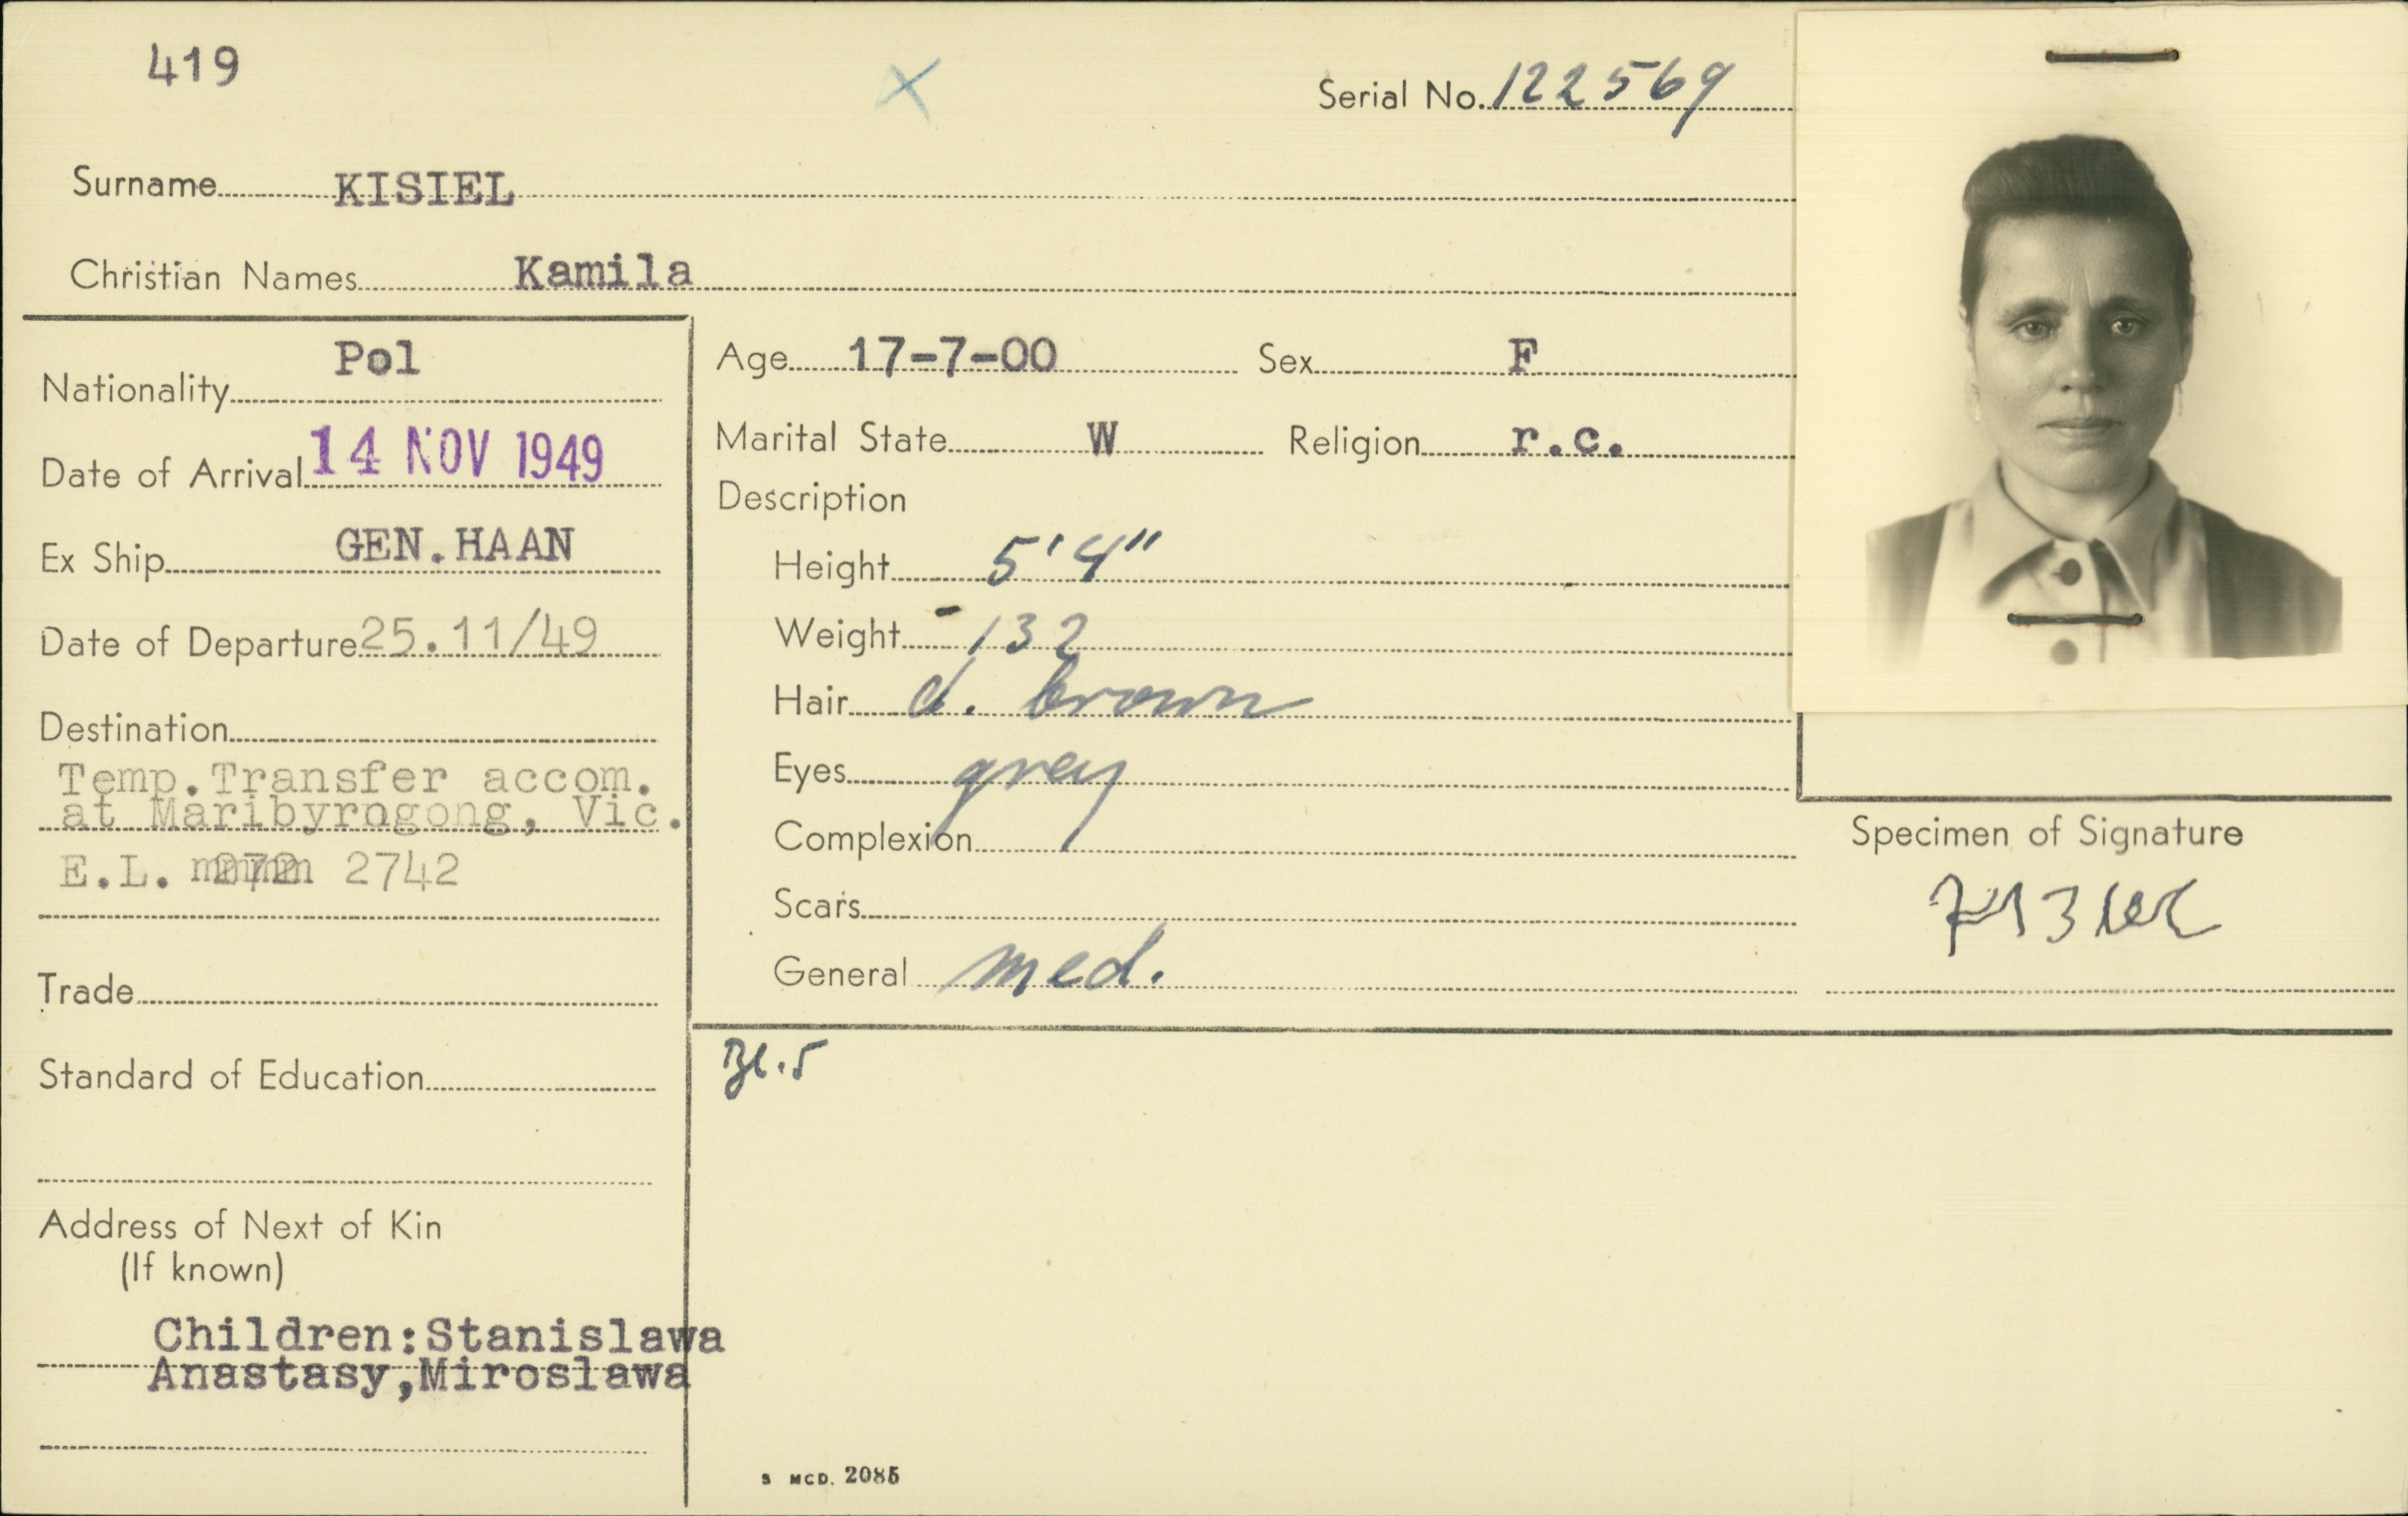 419
Serial No. 122569
Surname KISIEL
Christian Names Kamila
Nationality Pol
Date of Arrival 14 NOV 1949
Ex Ship GEN.HAAN
Date of Departure 25.11/49
Destination
Temp.Transfer accom.
at Maribyrogong, Vic.
E.L. 2742
Trade
Standard of Education
Address of Next of Kin
(If known)
Children:Stanislawa
Anastasy,Miroslawa
Age 17-7-00 Sex F
Marital State W Religion r.c.
Description
Height 5'4"
Weight 132
Hair d. brown
Eyes grey
Complexion
Scars
General med.
Specimen of Signature
Bl.5
S MCD. 2085